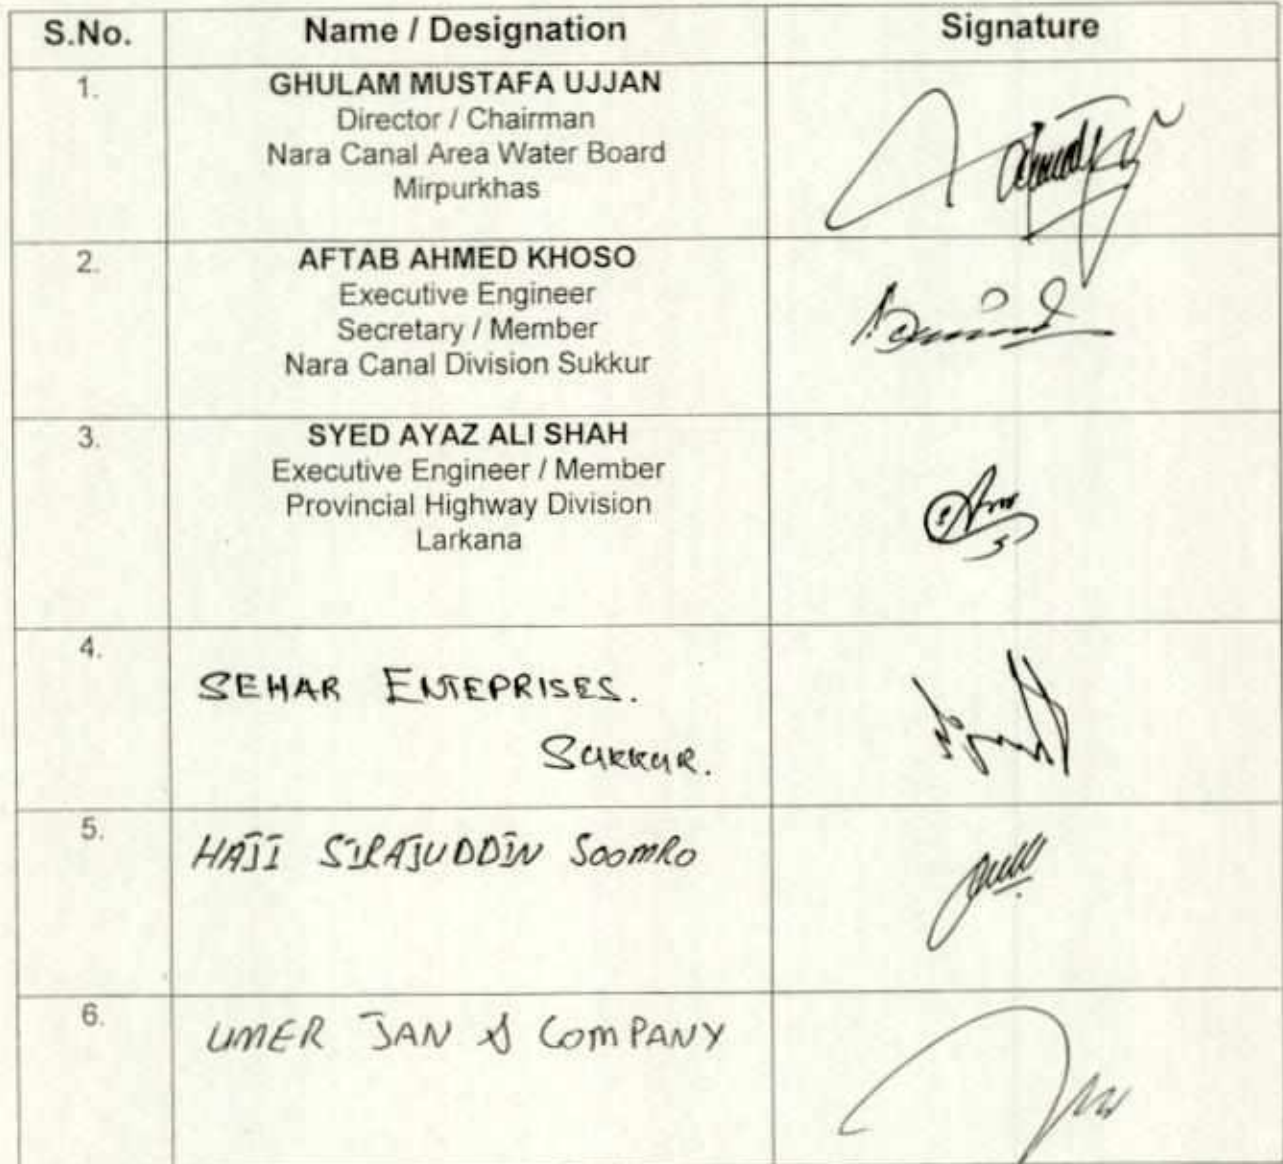 S.No. Name / Designation Signature
1. GHULAM MUSTAFA UJJAN
Director / Chairman
Nara Canal Area Water Board
Mirpurkhas
2. AFTAB AHMED KHOSO
Executive Engineer
Secretary / Member
Nara Canal Division Sukkur
3. SYED AYAZ ALI SHAH
Executive Engineer / Member
Provincial Highway Division
Larkana
4.
SEHAR ENTEPRISES.
SUKKUR.
5. HAJI SIRAJUDDIN SOOMRO
6. UMER JAN & COMPANY